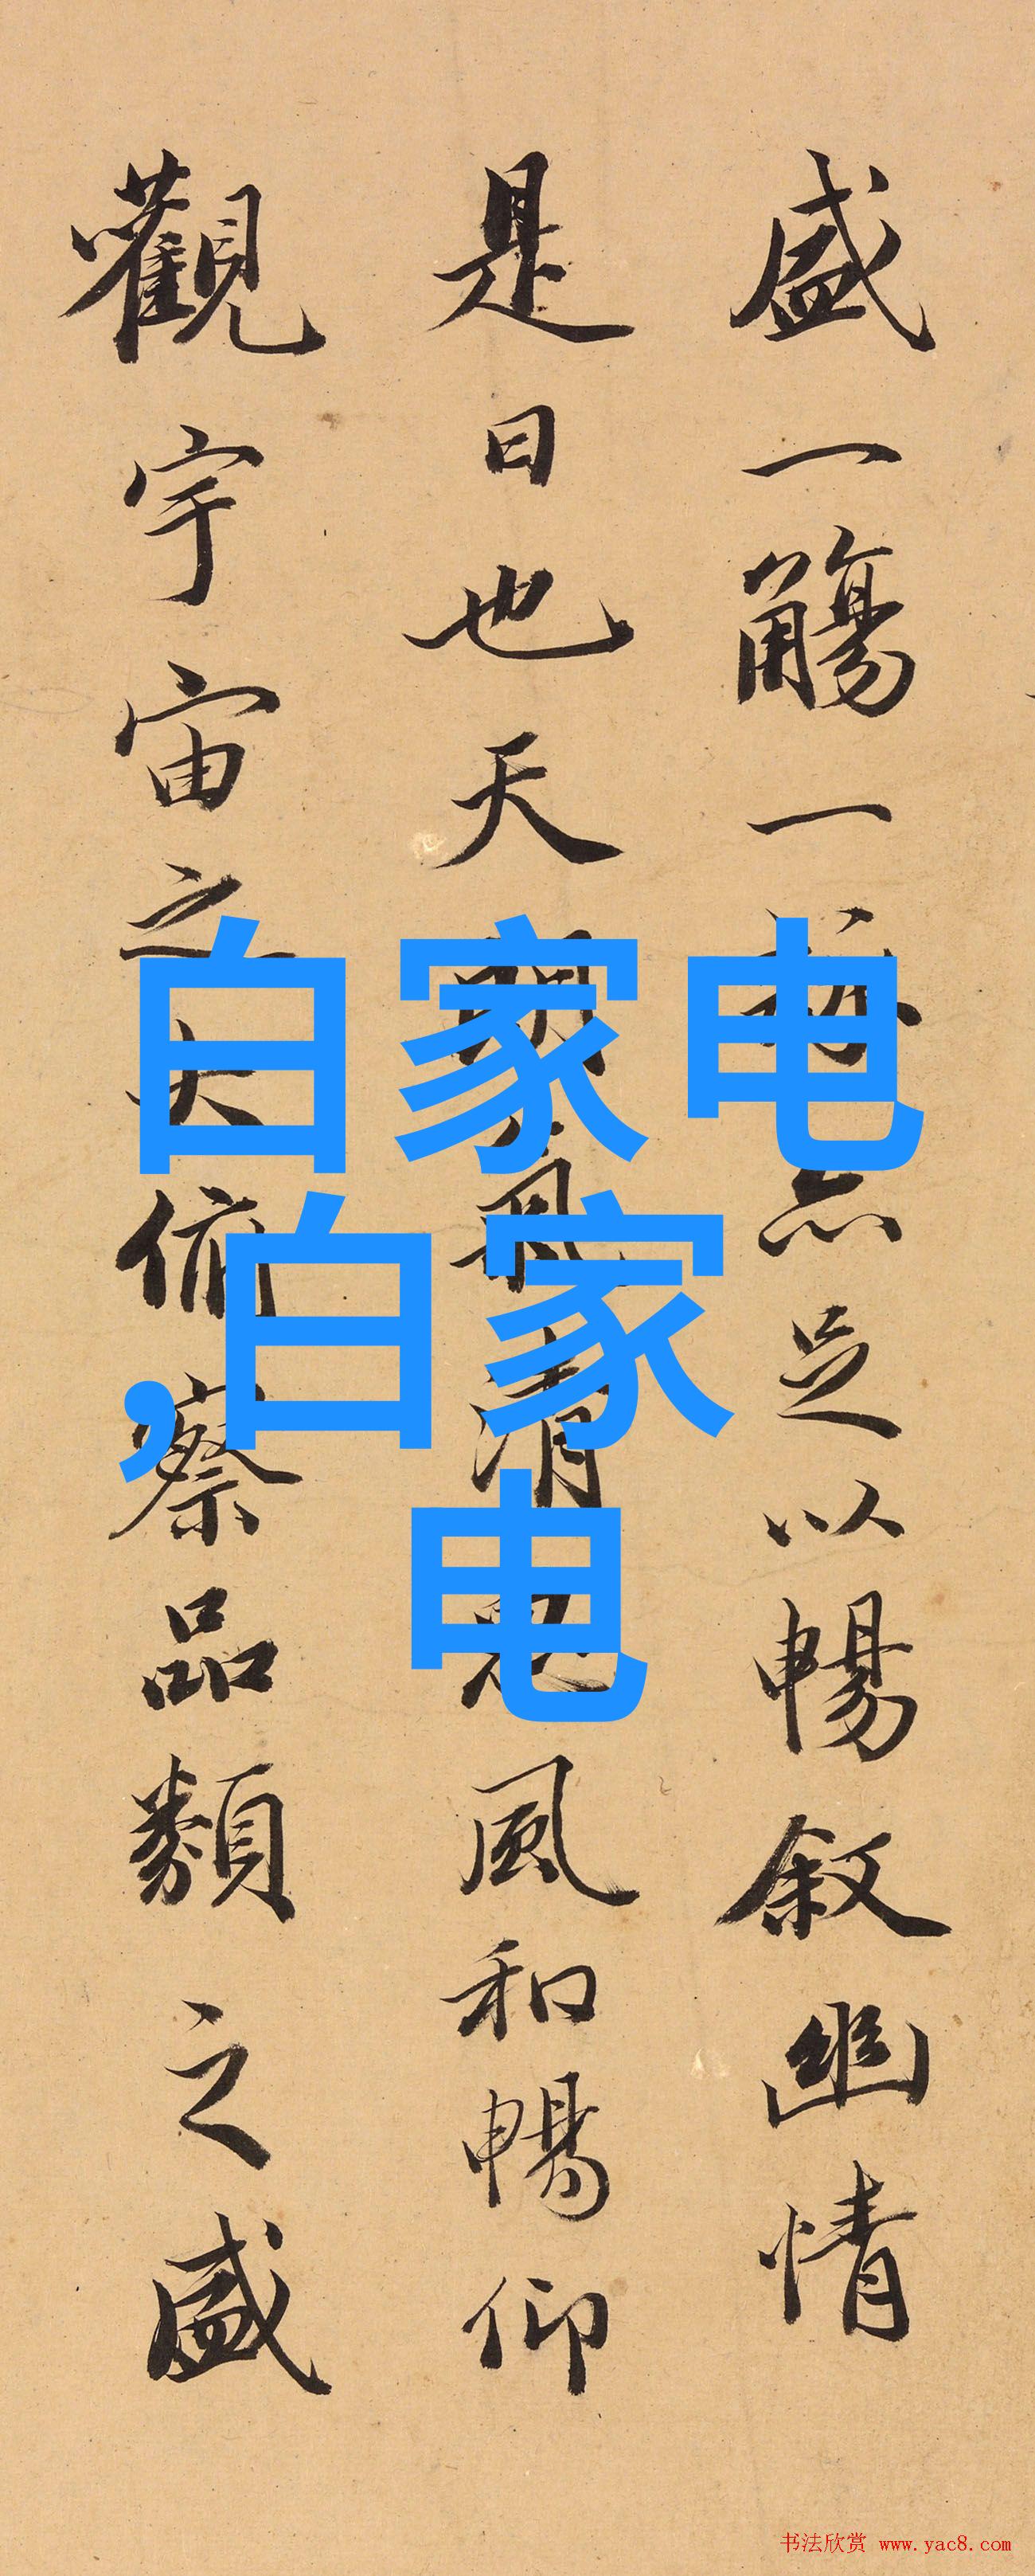 盛一觴一亦足以暢叙幽情
是日也天朗氣清惠風和暢仰
觀宇宙之大俯察品類之盛
白家电
,白家
电
书法欣赏 www.yac8.com